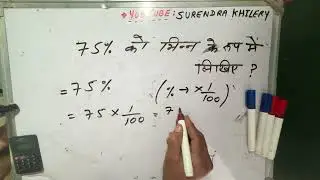 YOUTUBE: SURENDRA KHILERY
75% को भिन्न के रूप में
लिखिए ?
= 75% (% → × 1/100)
= 75 × 1/100 = 7